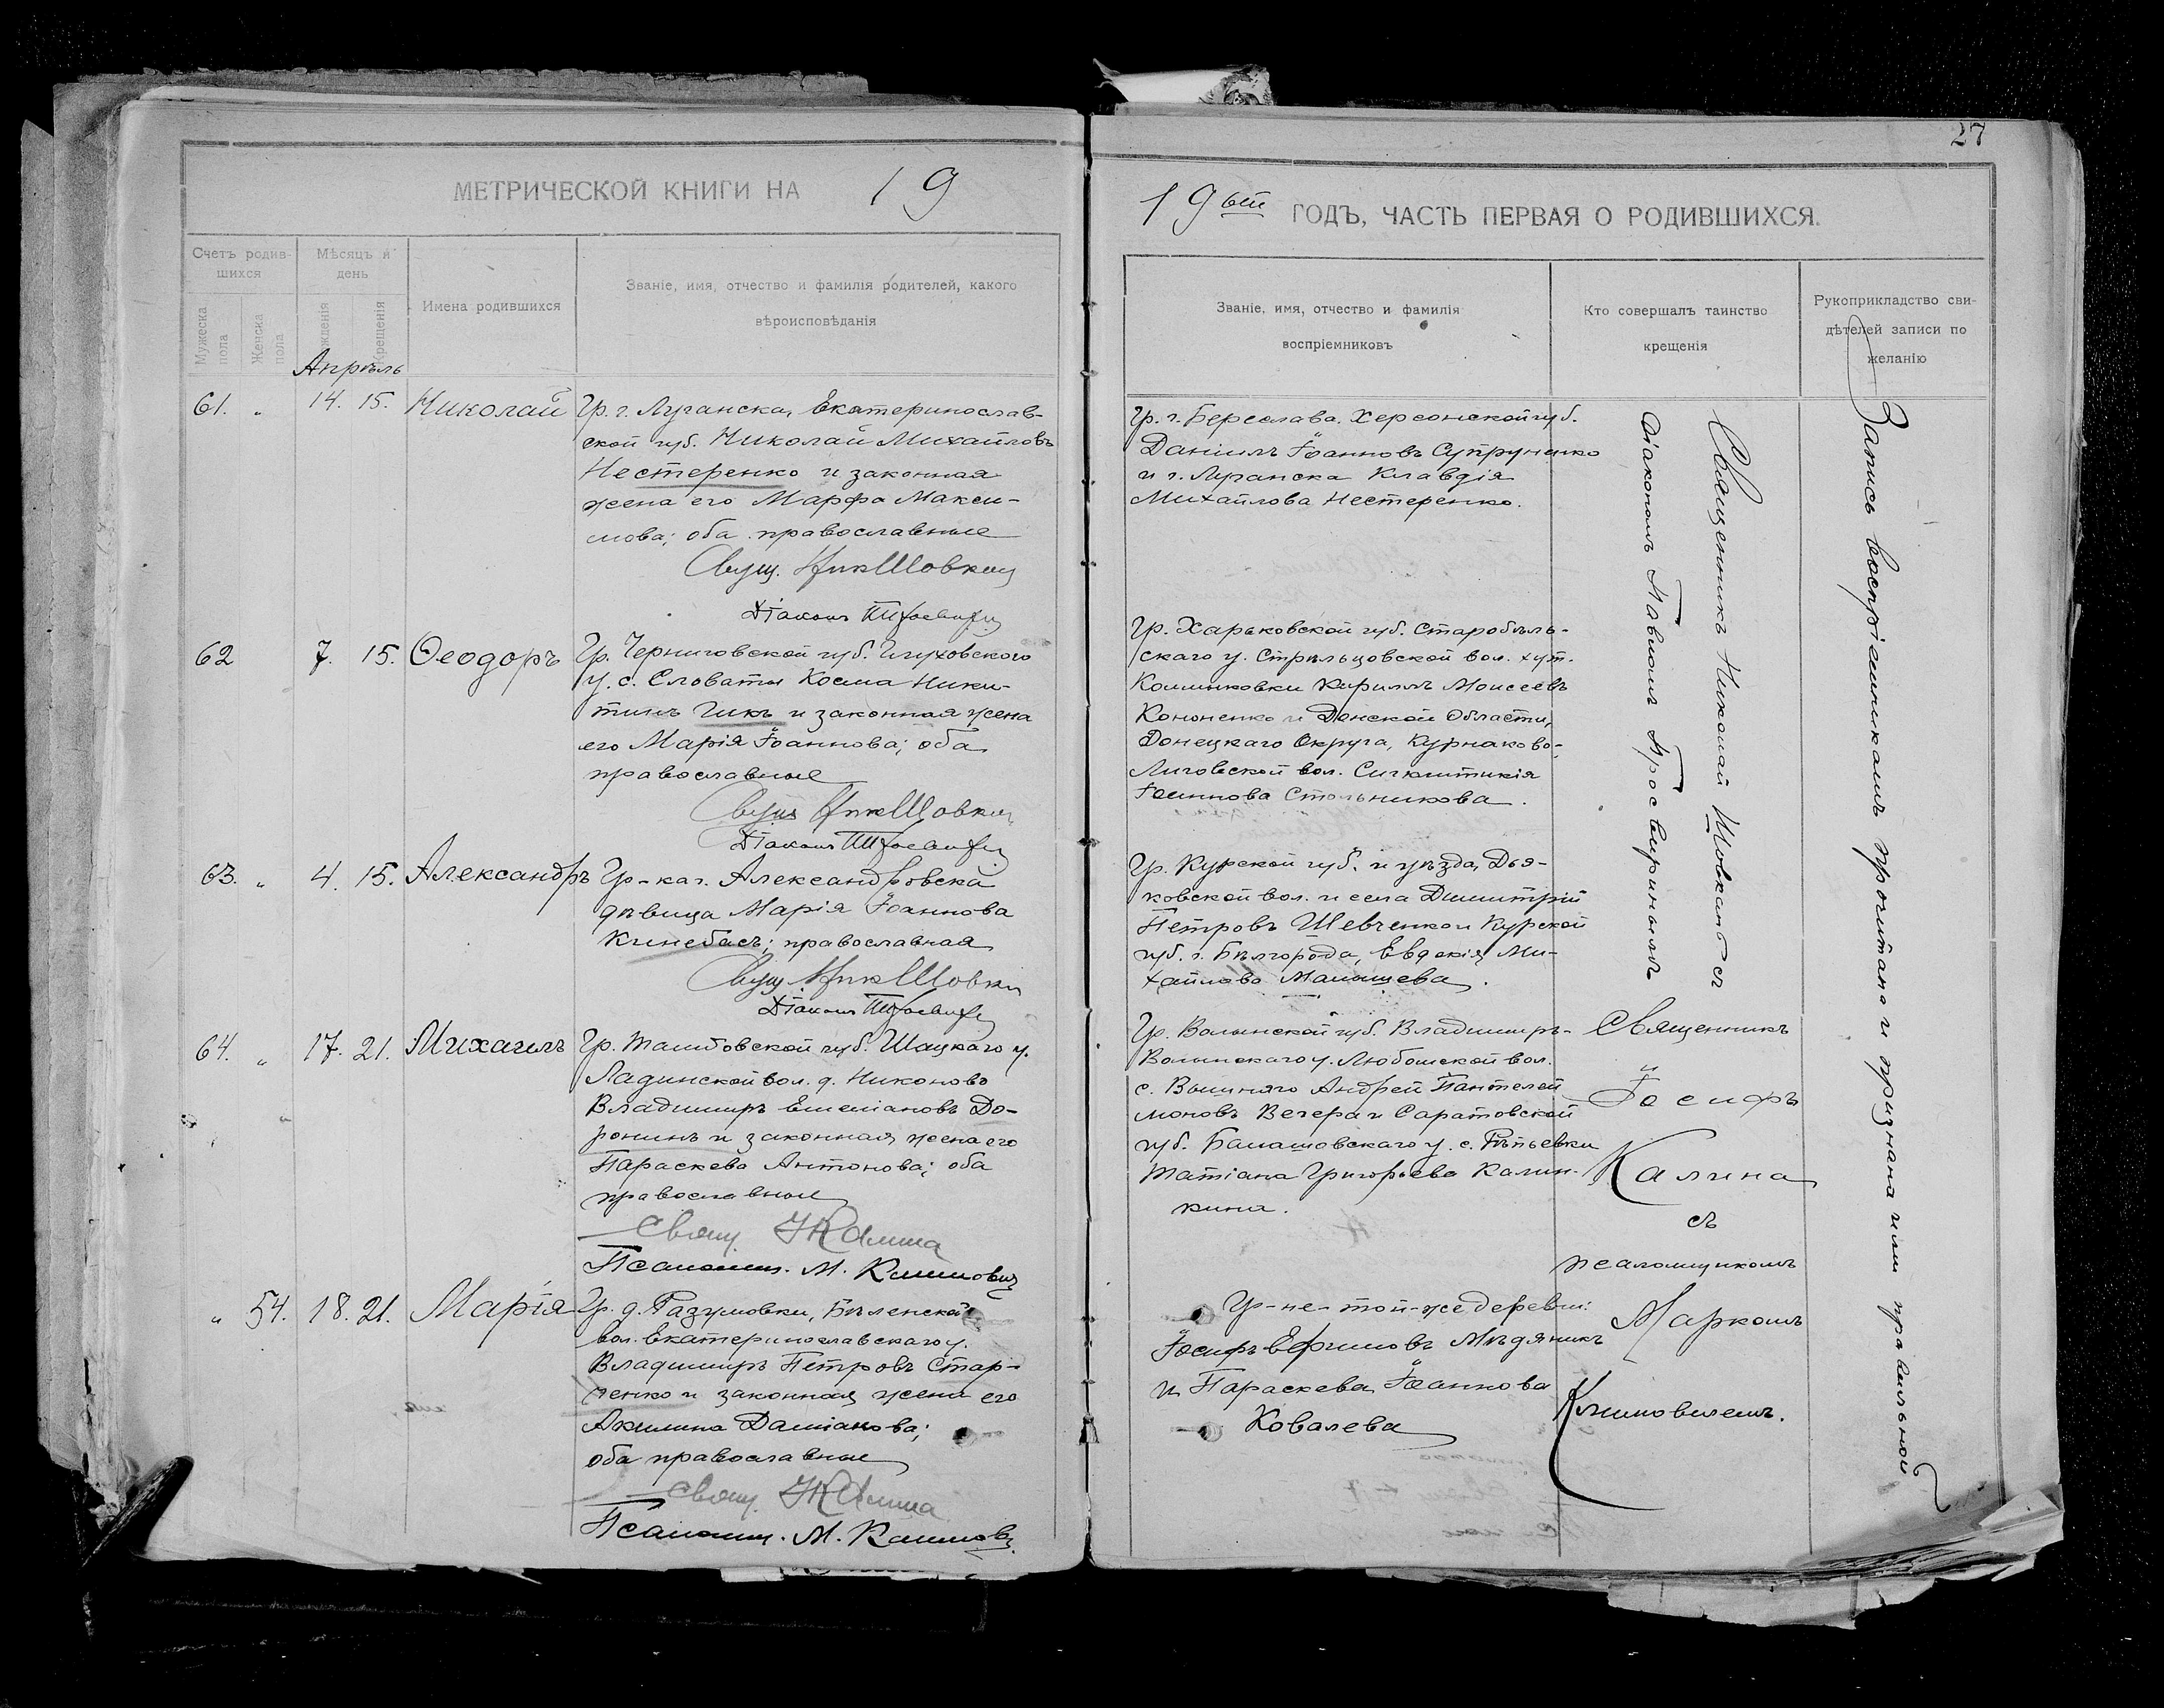 МЕТРИЧЕСКОЙ КНИГИ НА 19
Счетъ родив-
шихся
Мѣсяцъ и
день
Мужеска
пола
Женска
пола
Рожденія
Крещенія
Имена родившихся
Званіе, имя, отчество и фамилія родителей, какого
вѣроисповѣданія
Апрѣль
61. " 14. 15. Николай
Гр. г. Луганска, Екатеринослав-
ской губ. Николай Михайловъ
Нестеренко и законная
жена его Марфа Макси-
мова; оба православные
Діаконъ
62 7. 15. Ѳеодоръ
Гр. Черниговской губ. Глуховского
у. с. Словаты Косма Ники-
тинъ Гикъ и законная жена
его Марія Іоаннова; оба
православные
Діаконъ
63. " 4. 15. Александръ
Гр-ка г. Александровска
дѣвица Марія Іоаннова
Кинебасъ; православная
Діаконъ
64. " 17. 21. Михаилъ
Гр. Тамбовской губ. Шацкаго у.
Ладинской вол. д. Никоново
Владимиръ Емеліановъ До-
ронинъ и законная жена его
Параскева Антонова; оба
православные
Свящ. І Калина
Псаломщ. М. Климович
" 54. 18. 21. Марія
Гр. д. Разумовки, Бѣленской
вол. Екатеринославскаго у.
Владимиръ Петровъ Стар-
ченко и законная жена его
Акилина Даміанова;
оба православные
Свящ. І Калина
Псаломщ. М. Климов
27
19 ГОДЪ, ЧАСТЬ ПЕРВАЯ О РОДИВШИХСЯ.
Званіе, имя, отчество и фамилія
воспріемниковъ
Кто совершалъ таинство
крещенія
Рукоприкладство сви-
дѣтелей записи по
желанію
Гр. г. Береслава, Херсонской губ.
Даніилъ Іоанновъ Супруненко
и г. Луганска Клавдія
Михайлова Нестеренко.
Гр. Харьковской губ. Старобѣль-
скаго у. Стрѣльцовской вол. хут.
Кириллъ Моисеевъ
Кононенко и Донской Области,
Донецкаго Округа, Курнаково-
Лиговской вол. Синклитикія
Іоаннова Стольникова.
Гр. Курской губ. и уѣзда, Дья-
ковской вол. и села Димитрій
Петровъ Шевченко и Курской
губ. г. Бѣлгорода, Евдокія Ми-
хайлова Малышева.
Гр. Волынской губ. Владимиръ-
Волынскаго у. Любомской вол.
с. Вышняго Андрей Пантелей
моновъ Вечера и Саратовской
губ. Балашовскаго у. с. Рѣпьевки
Татіана Григорьева Калин-
кина.
Гр-не той-же деревни:
Іосифъ Ефимовъ Мѣдяникъ
и Параскева Іоаннова
Ковалева
Священникъ Николай Шовкан съ
Діакономъ Павломъ Просвиринымъ
Священникъ
Іосифъ
Калина
съ
псаломщикомъ
Маркомъ
Климовичемъ.
Запись воспріемникамъ прочитана и признана ими правильной